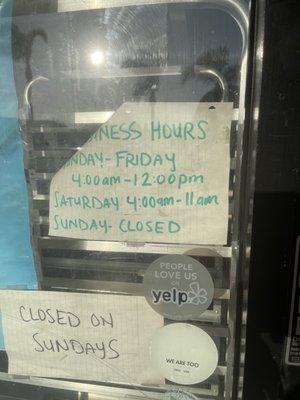 NESS HOURS
NDAY-FRIDAY
4:00am-12:00pm
SATURDAY 4:00am-11am
SUNDAY-CLOSED
PEOPLE
LOVE US
ON
yelp
CLOSED ON
SUNDAYS
WE ARE TOO